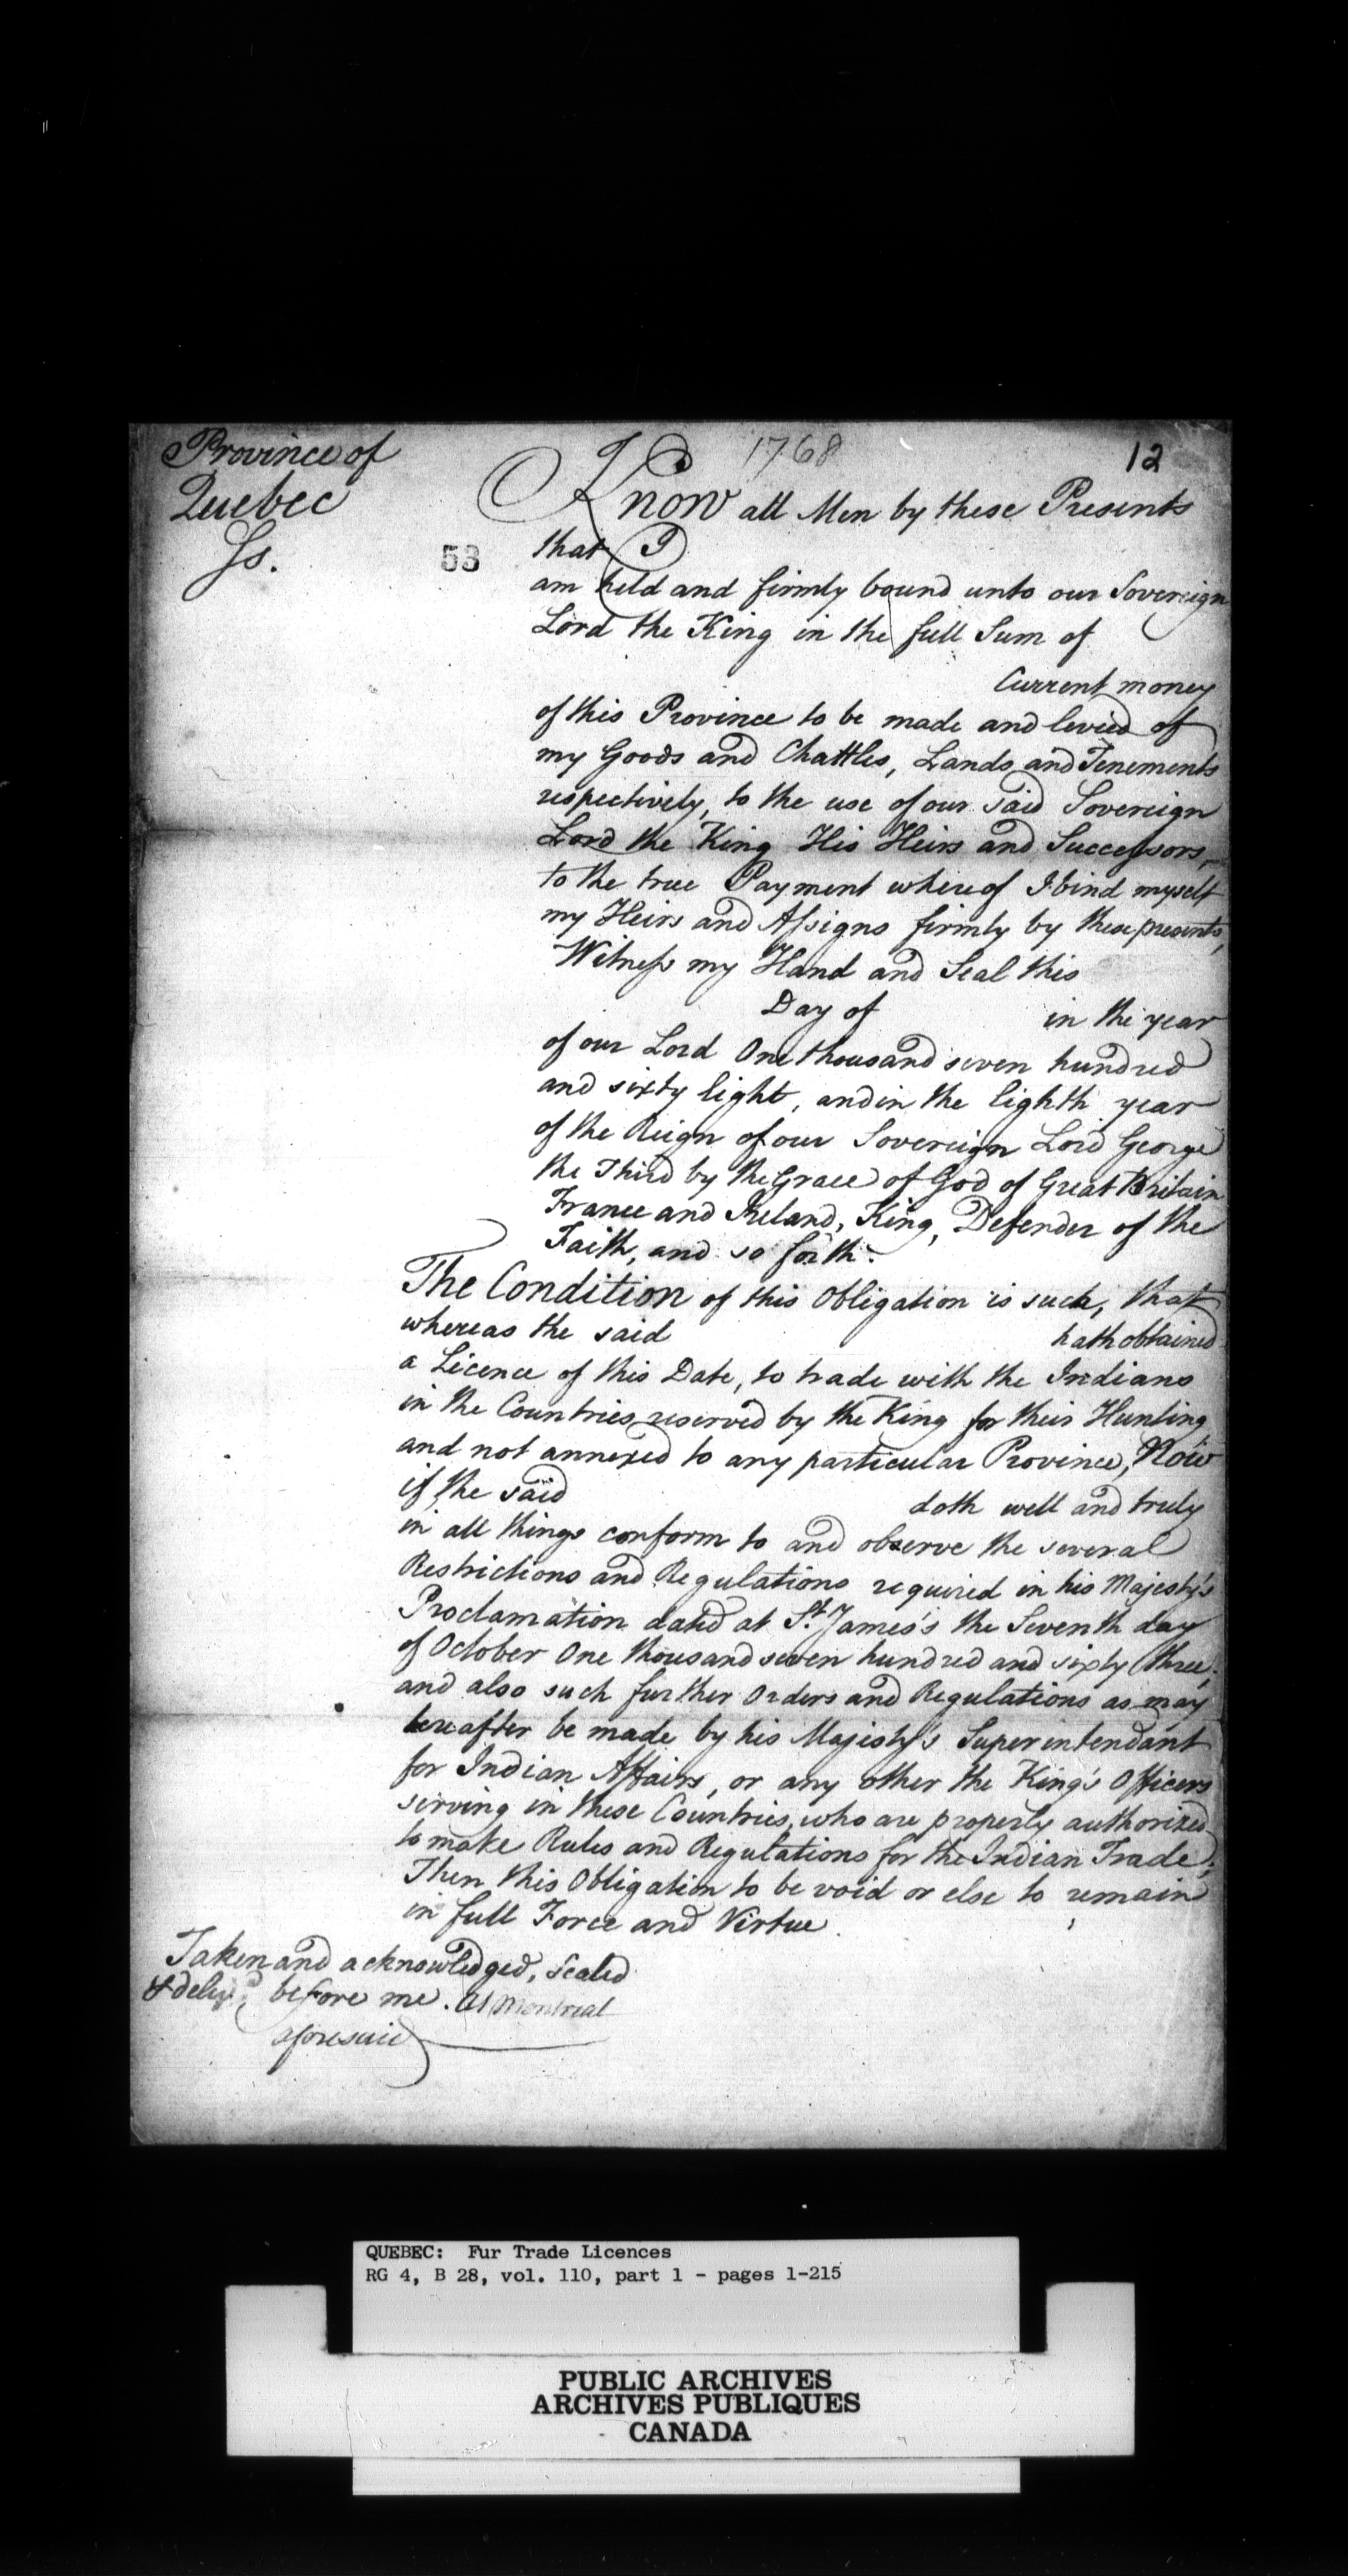 Province of
Quebec
Ss.
1768
12
53
Know all Men by these Presents
that I
am held and firmly bound unto our Sovereign
Lord the King in the full Sum of
Current money
of this Province to be made and levied of
my Goods and Chattles, Lands and Tenements
respectively, to the use of our said Sovereign
Lord the King His Heirs and Successors,
to the true Payment whereof I bind myself
my Heirs and Assigns firmly by these presents,
Witness my Hand and Seal this
Day of in the year
of our Lord One thousand seven hundred
and sixty Eight, and in the Eighth year
of the Reign of our Sovereign Lord George
the Third by the Grace of God of Great Britain
France and Ireland, King, Defender of the
Faith, and so forth.
The Condition of this Obligation is such, that
whereas the said hath obtained
a Licence of this Date, to trade with the Indians
in the Countries reserved by the King for their Hunting
and not annexed to any particular Province, Now
if the said doth well and truly
in all things conform to and observe the several
Restrictions and Regulations required in his Majesty's
Proclamation dated at St. James's the Seventh day
of October One thousand seven hundred and sixty three,
and also such further Orders and Regulations as may
hereafter be made by his Majesty's Superintendant
for Indian Affairs, or any other the King's Officers
serving in these Countries, who are properly authorized
to make Rules and Regulations for the Indian Trade;
Then this Obligation to be void or else to remain
in full Force and Virtue.
Taken and acknowledged, sealed
& deliv'd before me. At Montreal
aforesaid
QUEBEC: Fur Trade Licences
RG 4, B 28, vol. 110, part 1 - pages 1-215
PUBLIC ARCHIVES
ARCHIVES PUBLIQUES
CANADA